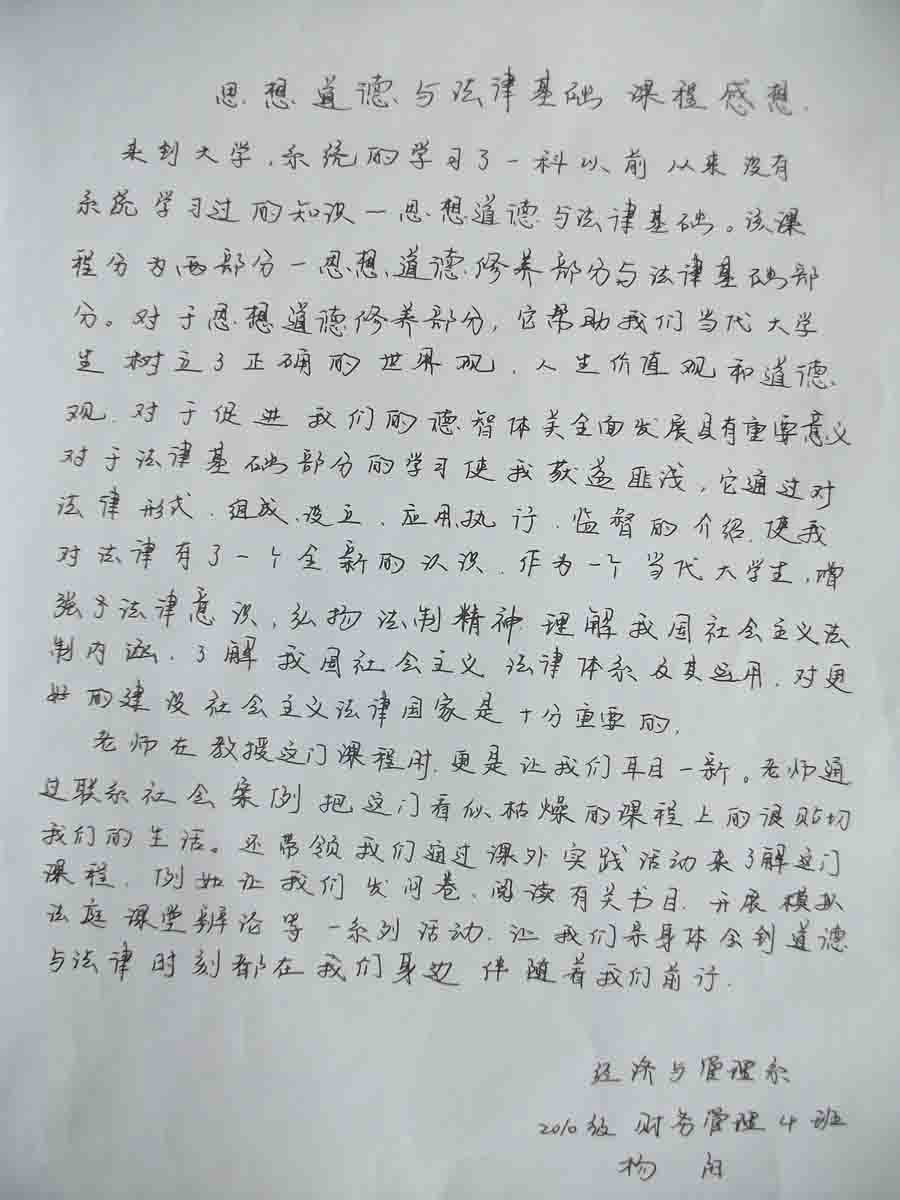 思想道德与法律基础 课程感想.
来到大学,系统的学习了一科以前从来没有
系统学习过的知识一思想道德与法律基础。该课
程分为两部分一思想道德修养部分与法律基础部
分。对于思想道德修养部分,它帮助我们当代大学
生树立了正确的世界观,人生价值观和道德
观.对于促进我们的德智体美全面发展具有重要意义
对于法律基础部分的学习使我获益匪浅,它通过对
法律形式.组成.设立.应用.执行.监督的介绍.使我
对法律有了一个全新的认识.作为一个当代大学生,增
强了法律意识,弘扬法制精神.理解我国社会主义法
制内涵.了解我国社会主义法律体系及其运用.对更
好的建设社会主义法律国家是十分重要的,
老师在教授这门课程时.更是让我们耳目一新。老师通
过联系社会案例把这门看似枯燥的课程上的很贴切
我们的生活。还带领我们通过课外实践活动来了解这门
课程.例如让我们发问卷.阅读有关书目.开展模拟
法庭课堂辨论等一系列活动.让我们亲身体会到道德
与法律时刻都在我们身边伴随着我们前行.
经济与管理系
2010级财务管理4班
杨